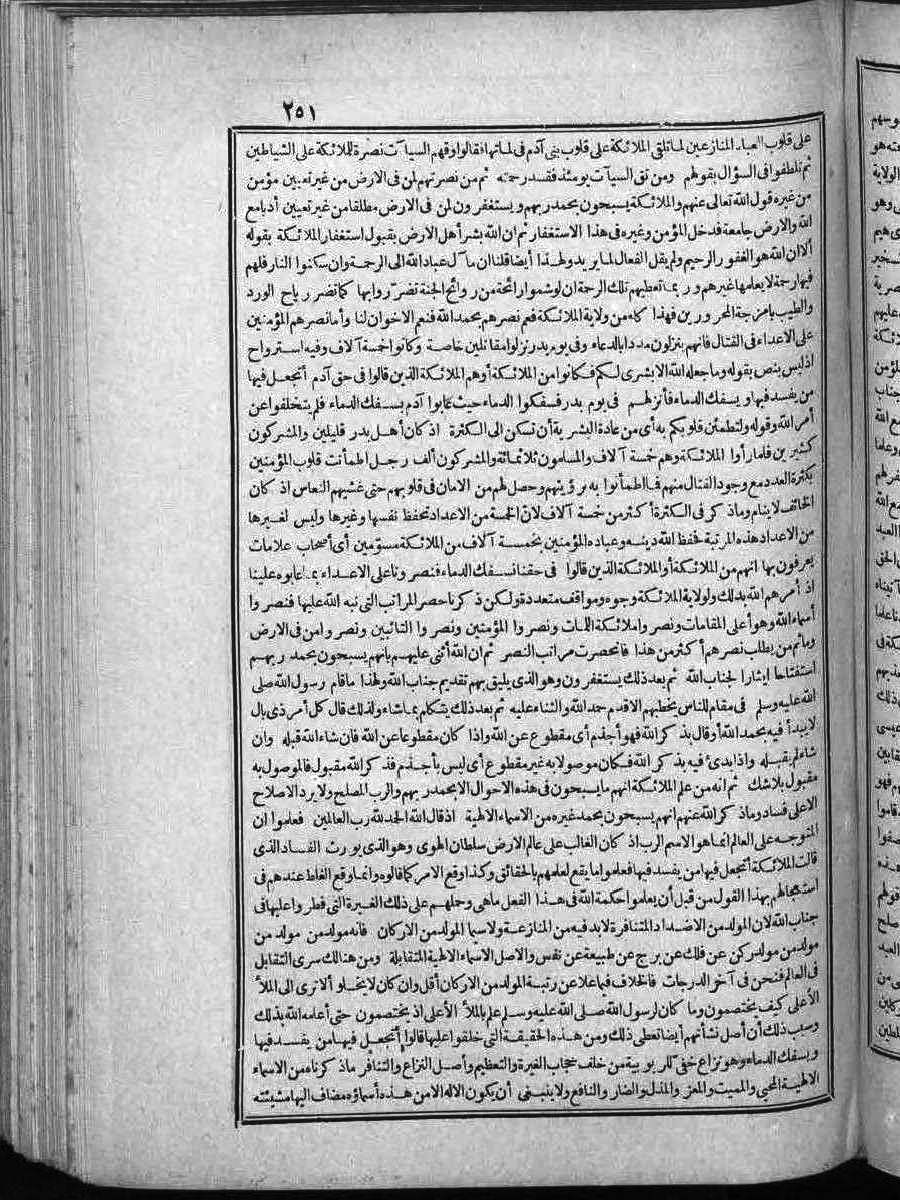 ٢٥١
على قلوب العباد المنازعين لما تلقى الملائكة على قلوب بنى آدم فى لماتها فقالوا وقهم السيآت نصرة للملائكة على الشياطين
ثم تلطفوا فى السؤال بقولهم ومن تق السيآت يومئذ فقد رحمته ثم من نصرتهم لمن فى الارض من غير تعيين مؤمن
من غيره قول الله تعالى عنهم والملائكة يسبحون بحمد ربهم ويستغفرون لمن فى الارض مطلقا من غير تعيين أدبا مع
الله والارض جامعة فدخل المؤمن وغيره فى هذا الاستغفار ثم ان الله بشر أهل الارض بقبول استغفار الملائكة بقوله
ألا ان الله هو الغفور الرحيم ولم يقل الفعال لما يريد ولهذا أيضا قلنا ان مآل عباد الله الى الرحمة وان سكنوا النار فلهم
فيها رحمة لا يعلمها غيرهم وربما تعطيهم تلك الرحمة ان لو شموا رائحة من روائح الجنة تضرّروا بها كما تضر رياح الورد
والطيب بامزجة المحرورين فهذا كله من ولاية الملائكة فعم نصرهم بحمد الله فنعم الاخوان لنا وأما نصرهم المؤمنين
على الاعداء فى القتال فانهم ينزلون مددا بالدعاء وفى يوم بدر نزلوا مقاتلين خاصة وكانوا خمسة آلاف وفيه استرواح
اذ ليس بنص بقوله وما جعله الله الا بشرى لكم فكانوا من الملائكة أو هم الملائكة الذين قالوا فى حق آدم أتجعل فيها
من يفسد فيها ويسفك الدماء فأنزلهم فى يوم بدر فسفكوا الدماء حيث عابوا آدم بسفك الدماء فلم يتخلفوا عن
أمر الله وقوله ولتطمئن قلوبكم به أى من عادة البشرية أن تسكن الى الكثرة اذ كان أهل بدر قليلين والمشركون
كثيرين فلما رأوا الملائكة وهم خمسة آلاف والمسلمون ثلثمائة والمشركون ألف رجل اطمأنت قلوب المؤمنين
بكثرة العدد مع وجود القتال منهم فما اطمأنوا به برؤيتهم وحصل لهم من الامان فى قلوبهم حتى غشيهم النعاس اذ كان
الخائف لا ينام وما ذكر فى الكثرة أكثر من خمسة آلاف لانّ الخمسة من الاعداد تحفظ نفسها وغيرها وليس لغيرها
من الاعداد هذه المرتبة فحفظ الله دينه وعباده المؤمنين بخمسة آلاف من الملائكة مسوّمين أى أصحاب علامات
يعرفون بها انهم من الملائكة أو الملائكة الذين قالوا فى حقنا نسفك الدماء فنصرونا على الاعداء بما عابوه علينا
اذ أمرهم الله بذلك ولولاية الملائكة وجوه ومواقف متعددة ولكن ذكرنا حصر المراتب التى نبه الله عليها فنصروا
أسماء الله وهو أعلى المقامات ونصروا ملائكة اللمات ونصروا المؤمنين ونصروا التائبين ونصروا من فى الارض
وما ثم من يطلب نصرهم أكثر من هذا فانحصرت مراتب النصر ثم ان الله أثنى عليهم بانهم يسبحون بحمد ربهم
استفتاحا ايثارا لجناب الله ثم بعد ذلك يستغفرون وهو الذى يليق بهم تقديم جناب الله ولهذا ما قام رسول الله صلى
الله عليه وسلم فى مقام للناس يخطبهم الا قدم حمد الله والثناء عليه ثم بعد ذلك يتكلم بما شاء ولذلك قال كل أمر ذى بال
لا يبدأ فيه بحمد الله أو قال بذكر الله فهو أجذم أى مقطوع عن الله واذا كان مقطوعا عن الله فان شاء الله قبله وان
شاء لم يقبله واذا بدئ فيه بذكر الله فكان موصولا به غير مقطوع أى ليس بأجذم فذكر الله مقبول فالموصول به
مقبول بلا شك ثم انه من علم الملائكة انهم ما يسبحون فى هذه الاحوال الا بحمد ربهم والرب المصلح ولا يرد الاصلاح
الا على فساد وما ذكر الله عنهم انهم يسبحون بحمد غيره من الاسماء الالهية اذ قال الله الحمد لله رب العالمين فعلموا ان
المتوجه على العالم انما هو الاسم الرب اذ كان الغالب على عالم الارض سلطان الهوى وهو الذى يورث الفساد الذى
قالت الملائكة أتجعل فيها من يفسد فيها فعلموا ما يقع لعلمهم بالحقائق وكذا وقع الامر كما قالوه وانما وقع الغلط عندهم فى
استعجالهم بهذا القول من قبل أن يعلموا حكمة الله فى هذا الفعل ما هى وحملهم على ذلك الغيرة التى فطروا عليها فى
جناب الله لان المولد من الاضداد المتنافرة لا بد فيه من المنازعة ولا سيما المولد من الاركان فانه مولد من مولد من
مولد من مولد ركن عن فلك عن برج عن طبيعة عن نفس والاصل الاسماء الالهية المتقابلة ومن هنالك سرى التقابل
فى العالم فنحن فى آخر الدرجات فالخلاف فيما علا عن رتبة المولد من الاركان أقل وان كان لا يخلو ألا ترى الى الملأ
الأعلى كيف يختصمون وما كان لرسول الله صلى الله عليه وسلم علم بالملأ الأعلى اذ يختصمون حتى أعلمه الله بذلك
وسبب ذلك أن أصل نشأتهم أيضا تعطى ذلك ومن هذه الحقيقة التى خلقوا عليها قالوا أتجعل فيها من يفسد فيها
ويسفك الدماء وهو نزاع خفى للربوبية من خلف حجاب الغيرة والتعظيم وأصل النزاع والتنافر ما ذكرناه من الاسماء
الالهية المحيي والمميت والمعز والمذل والضار والنافع ولا ينبغى أن يكون الاله الا من هذه أسماؤه مضاف اليها مشيئته